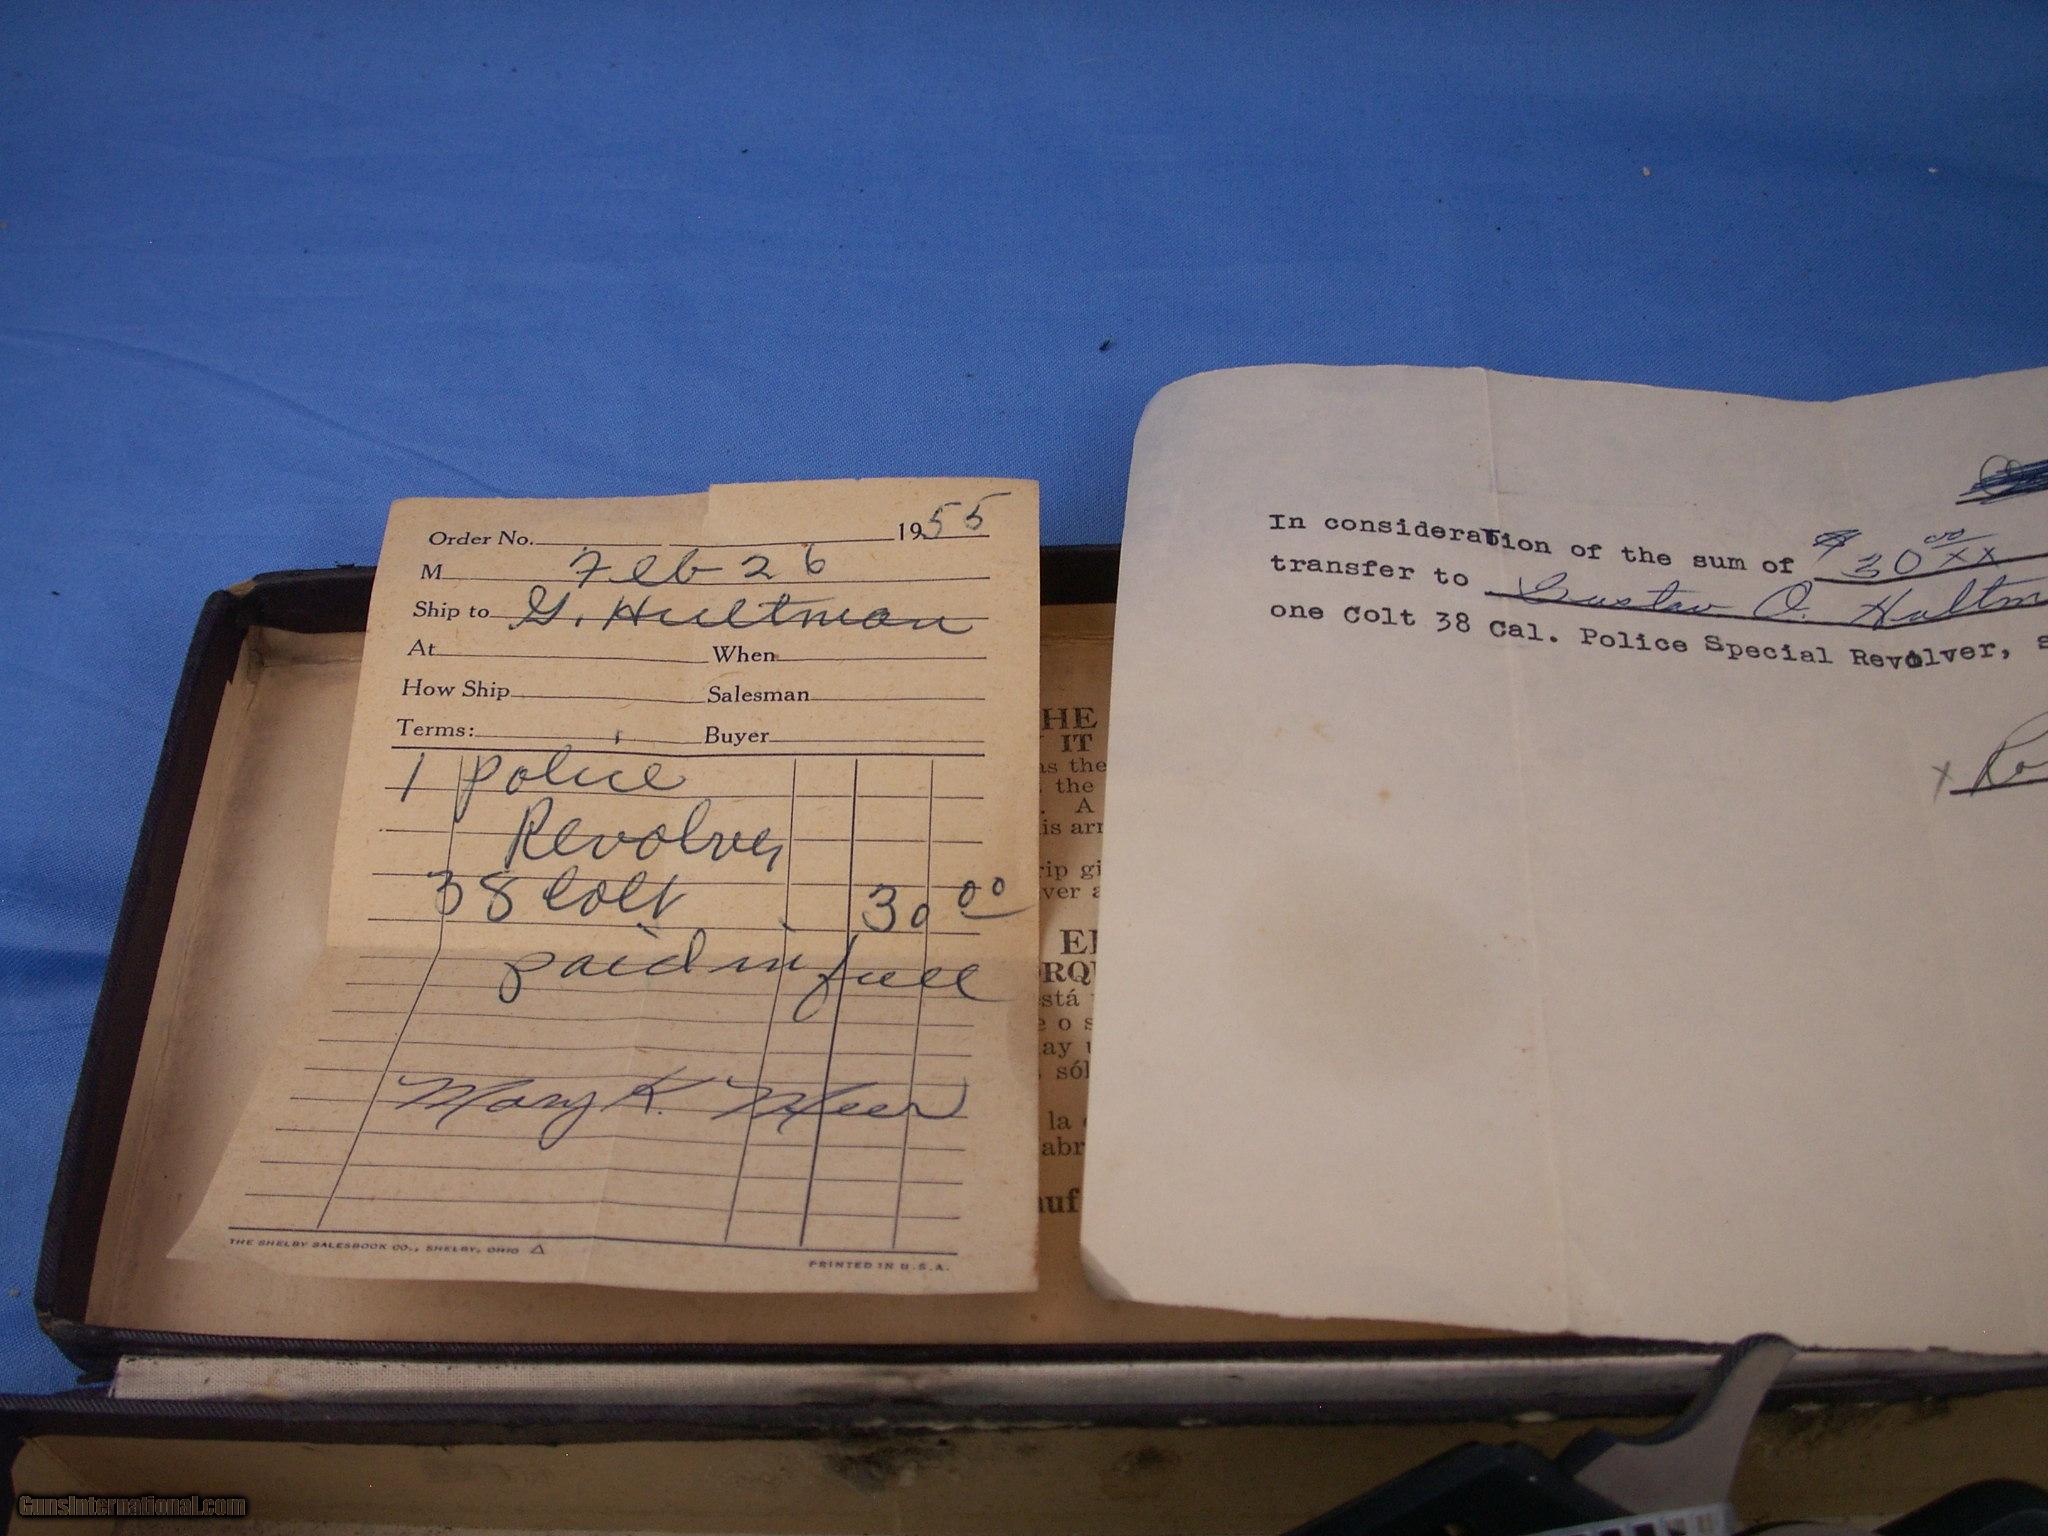 Order No. 1955
M Feb 26
Ship to G. Hultman
At When
How Ship Salesman
Terms: Buyer
1 police
Revolver
38 Colt 30 00
paid in full
Mary K. Meer
THE SHELBY SALESBOOK CO., SHELBY, OHIO
PRINTED IN U.S.A.
In consideration of the sum of $30 00/xx
transfer to Gustav O. Hultm
one Colt 38 Cal. Police Special Revolver, s
x Ro
HE
IT
as the
the
. A
is arr
rip gi
ver a
EL
ORQU
está
e o s
ay u
sól
la
abr
auf
GunsInternational.com